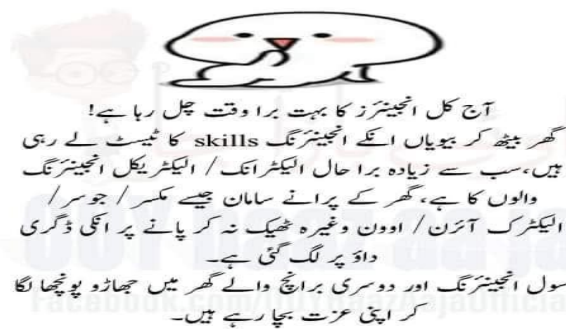 آج کل انجینئرز کا بہت برا وقت چل رہا ہے!
گھر بیٹھ کر بیویاں انکے انجینئرنگ skills کا ٹیسٹ لے رہی
ہیں،سب سے زیادہ برا حال الیکٹرانک / الیکٹریکل انجینئرنگ
والوں کا ہے، گھر کے پرانے سامان جیسے مکسر / جوسر/
الیکٹرک آئرن/ اوون وغیرہ ٹھیک نہ کر پانے پر انکی ڈگری
داؤ پر لگ گئی ہے۔
سول انجینئرنگ اور دوسری برانچ والے گھر میں جھاڑو پونچھا لگا
کر اپنی عزت بچا رہے ہیں۔